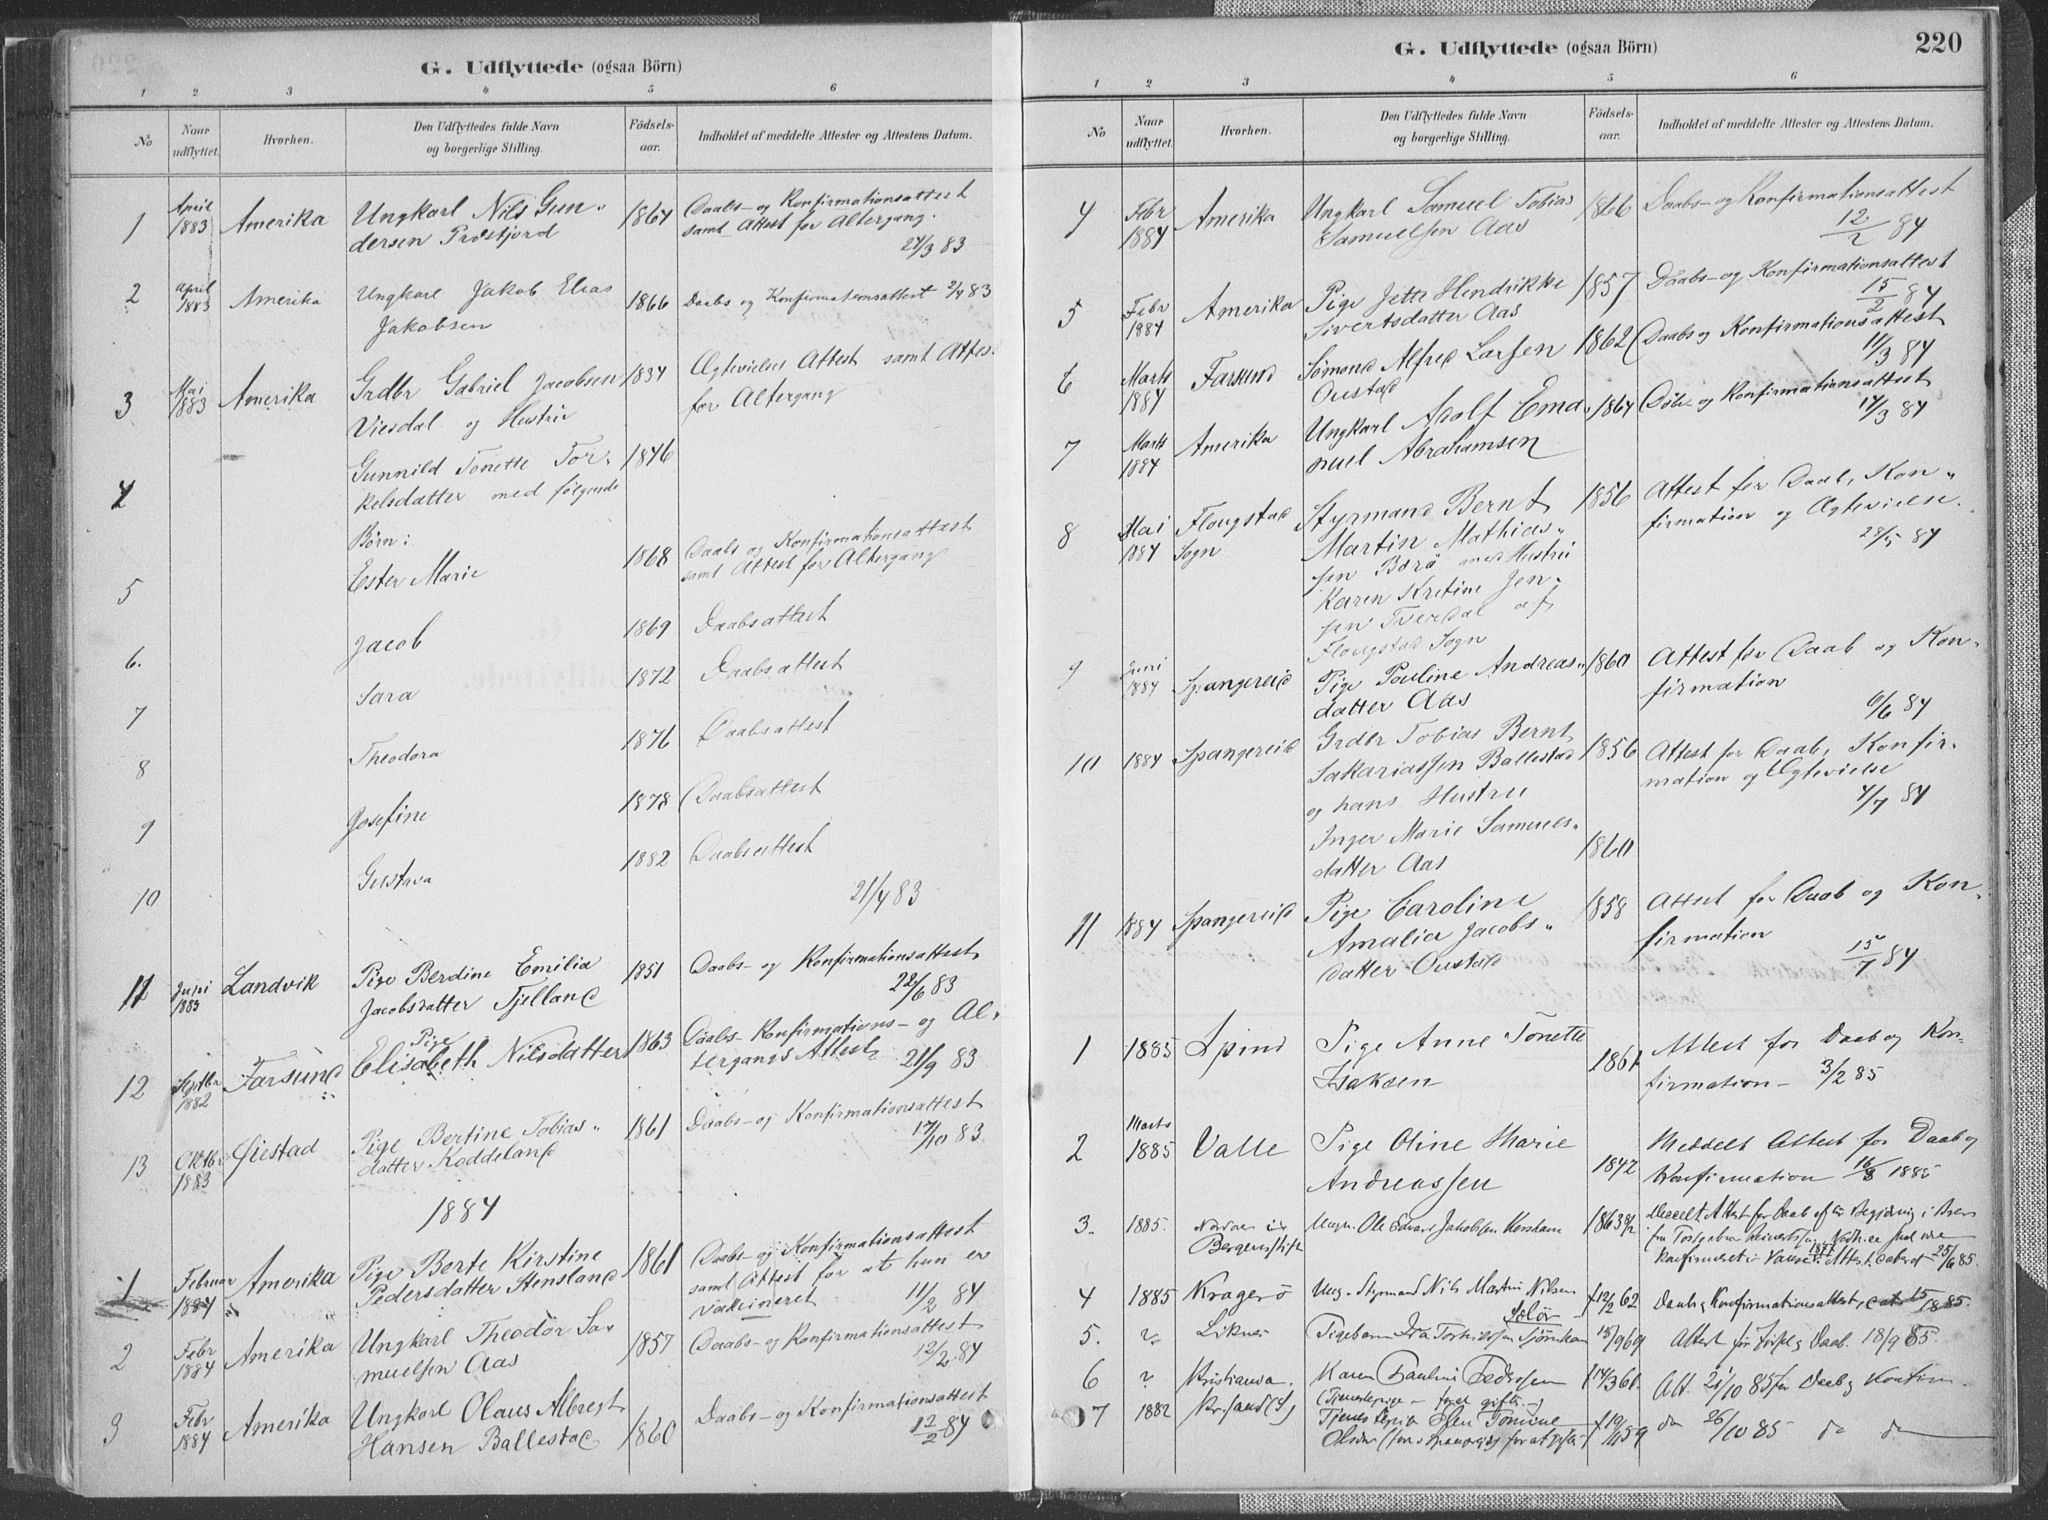 G. Udflyttede (ogsaa Börn)
1 2 3 4 5 6
No
Naar udflyttet.
Hvorhen.
Den Udflyttedes fulde Navn og borgerlige Stilling.
Födsels-aar.
Indholdet af meddelte Attester og Attestens Datum.
1 April 1883 Amerika Ungkarl Nils Gun- 1864 Daabs- og Konfirmationsattest
dersen samt Attest for Altergang.
24/3 83
2 April 1883 Amerika Ungkarl Jakob Elias 1866 Daabs og Konfirmationsattest 2/4 83
Jakobsen
3 Mai 1883 Amerika Grdbr Gabriel Jacobsen 1834 Ægtevielses Attest samt Attes-
Viesdal og Hustru for Altergang
4 Gunnild Tonette Tor- 1846
kelsdatter med følgende
Børn:
5 Ester Marie 1868 Daabs og Konfirmationsattest
samt Attest for Altergang
6. Jacob 1869 Daabsattest
7 Sara 1872 Daabsattest
8 Theodora 1876 Daabsattest
9 Josefine 1878 Daabsattest
10 Gustava 1882 Daabsattest
21/4 83
11 Juni 1883 Landvik Pige Berdine Emilia 1851 Daabs- og Konfirmationsattest
Jacobsdatter Tjelland 22/6 83
12 Septbr 1882 Farsund Pige Elisabeth Nilsdatter 1863 Daabs- Konfirmations- og Al-
tergangs Attest 21/9 83
13 Oktbr 1883 Øiestad Pige Bertine Tobias- 1861 Daabs- og Konfirmationsattest
datter Koddeland 17/10 83
1884
1 Februar 1884 Amerika Pige Berte Kirstine 1861 Daabs- og Konfirmationsattest
Pedersdatter Stensland samt Attest for at hun er
vakcineret 11/2 84
2 Febr 1884 Amerika Ungkarl Theodor Sa- 1857 Daabs- og Konfirmationsattest
muelsen Aas 12/2 84
3 Febr 1884 Amerika Ungkarl Olaus Albregt 1860 Daabs- og Konfirmationsattest
Hansen Ballestad 12/2 84
G. Udflyttede (ogsaa Börn)
220
1 2 3 4 5 6
No
Naar udflyttet.
Hvorhen.
Den Udflyttedes fulde Navn og borgerlige Stilling.
Födsels-aar.
Indholdet af meddelte Attester og Attestens Datum.
4 Febr 1884 Amerika Ungkarl Samuel Tobias 1866 Daabs- og Konfirmationsattest
Samuelsen Aas 12/2 84
5 Febr 1884 Amerika Pige Jette Hendrikke 1857 Daabs- og Konfirmationsattest
Sivertsdatter Aas 15/2 84
6 Marts 1884 Farsund Sømand Alfred Larsen 1862 Daabs og Konfirmationsattest
Oustad 11/3 84
7 Marts 1884 Amerika Ungkarl Adolf Ema- 1864 Døbe og Konfirmationsattest
nuel Abrahamsen 14/3 84
8 Mai 1884 Flougstad Sogn Styrmand Bernt 1856 Attest for Daab, Kon-
Martin Mathias- firmation og Ægtevielse.
sen Barø med Hustru 28/5 84
Karen Kristine Jen-
sen Tverdal af
Flougstad Sogn
9 Juni 1884 Spangereid Pige Pouline Andreas- 1860 Attest for Daab og Kon-
datter Aas firmation
6/6 84
10 1884 Spangereid Grdbr Tobias Bernt 1856 Attest for Daab, Konfir-
Sakariassen Ballestad mation og Ægtevielse
og hans Hustru 4/7 84
Inger Marie Samuels- 1860
datter Aas
11 1884 Spangereid Pige Caroline 1858 Attest for Daab og Kon-
Amalia Jacobs- firmation
datter Oustad 15/7 84
1 1885 Spind Pige Anne Tonette 1861 Attest for Daab og Kon-
Isaksen firmation - 3/2 85
2 Marts 1885 Valle Pige Oline Marie 1842 Meddelt Attest for Daab og
Andreassen Konfirmation 16/3 1885
3. 1885. Bergens Stift Ungk. Ole Edvard Jakobsen 1863 Meddelt Attest for Daab
25/6 85.
4 1885 Kragerø Ung. Styrmand Nils Martin Nilsen 12/2 62 Daab og Konfirmationsattest
5. Liknes Pigebarn 18/9 69 Attest for Daab. 18/9 85.
6 Kristiansa. Karen Pauline Pedersen 14/3 61. Att. 21/10 85 for Daab og
(Tjenestepige -
7 1882 Kr.sand(S) 19/11 59 do 26/10 85 do do